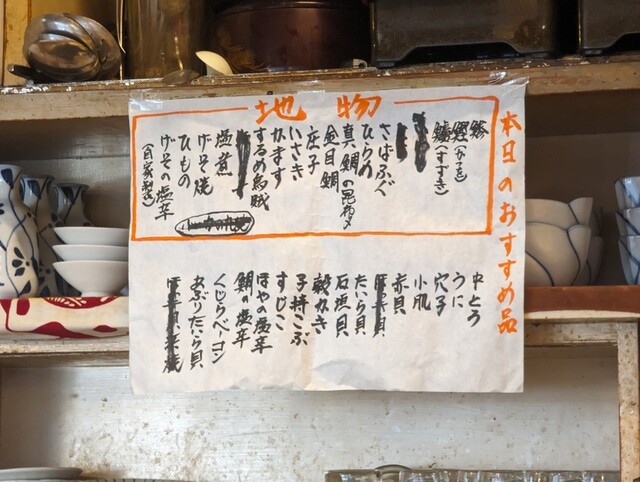 本日のおすすめ品
地物
鯵
鰹(かつを)
鱸(すずき)
さばふぐ
ひらめ
真鯛の昆布〆
金目鯛
庄子
いさき
かます
するめ烏賊
塩煮
げそ焼
ひもの
げその塩辛
(自家製)
中とろ
うに
穴子
小肌
赤貝
たいら貝
石垣貝
殻かき
子持こぶ
すじこ
ほやの塩辛
鯛の塩辛
くじらベーコン
あぶりたいら貝